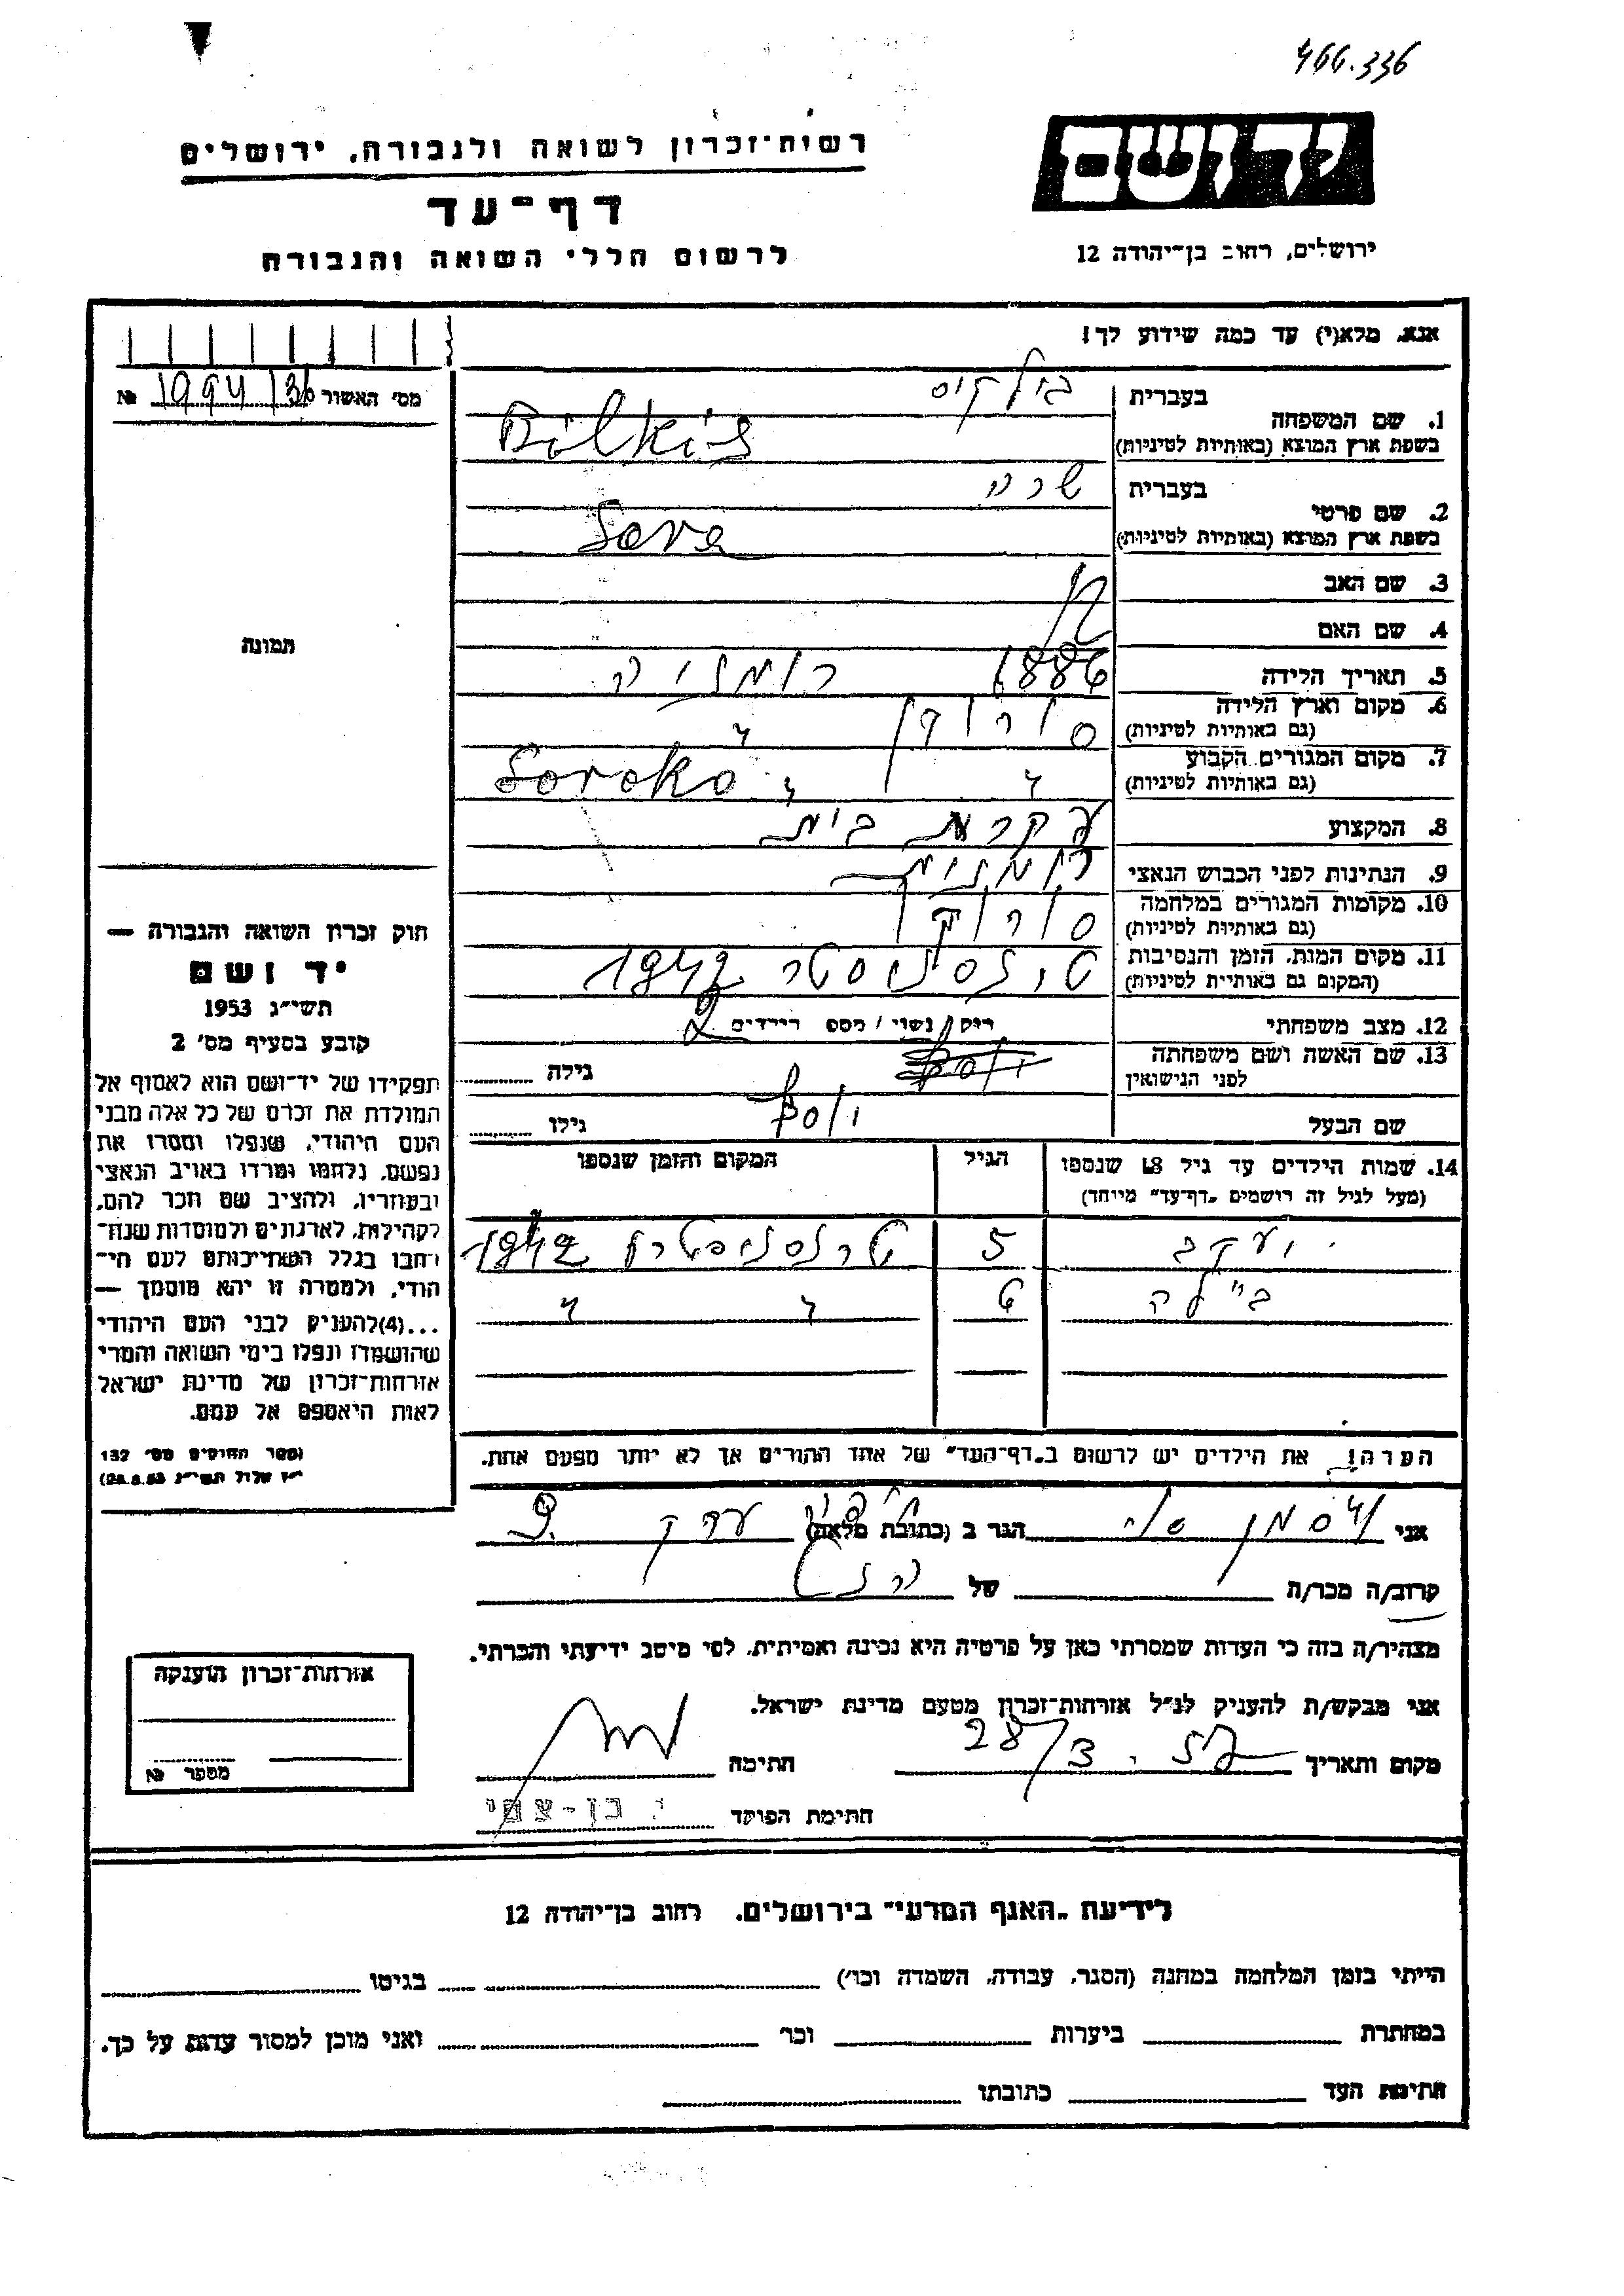 466.336
רשות־זכרון לשואה ולגבורה, ירושלים
יד ושם
דף־עד
ירושלים, רחוב בן־יהודה 12
לרשום חללי השואה והגבורה
אנא, מלא(י) עד כמה שידוע לך!
מס׳ האשור № 1994/36
תמונה
1. שם המשפחה
בעברית בילקיס
בשפת ארץ המוצא (באותיות לטיניות) Bilkis
2. שם פרטי
בעברית שרה
בשפת ארץ המוצא (באותיות לטיניות) Sara
3. שם האב
4. שם האם
5. תאריך הלידה 1886 רומניה
6. מקום וארץ הלידה
(גם באותיות לטיניות) סורוקי "
7. מקום המגורים הקבוע
(גם באותיות לטיניות) " " Soroka
8. המקצוע עקרת בית
9. הנתינות לפני הכבוש הנאצי רומנית
10. מקומות המגורים במלחמה
(גם באותיות לטיניות) סורוקי
11. מקום המות, הזמן והנסיבות
(המקום גם באותיות לטיניות) 1942
12. מצב משפחתי רוק / נשוי / מספר הילדים 2
13. שם האשה ושם משפחתה
לפני הנישואין
גילה
שם הבעל יוסף גילו
14. שמות הילדים עד גיל 18 שנספו
(מעל לגיל זה רושמים „דף־עד” מיוחד)
הגיל
המקום והזמן שנספו
יעקב 5 1942
ביילה 6 " "
הערה! את הילדים יש לרשום ב„דף־העד” של אחד ההורים אך לא יותר מפעם אחת.
חוק זכרון השואה והגבורה —
יד ושם
תשי״ג 1953
קובע בסעיף מס׳ 2
תפקידו של יד־ושם הוא לאסוף אל
המולדת את זכרם של כל אלה מבני
העם היהודי, שנפלו ומסרו את
נפשם, נלחמו ומרדו באויב הנאצי
ובעוזריו, ולהציב שם וזכר להם,
לקהילות, לארגונים ולמוסדות שנח־
רבו בגלל השתייכותם לעם הי־
הודי, ולמטרה זו יהא מוסמך —
...(4) להעניק לבני העם היהודי
שהושמדו ונפלו בימי השואה והמרי
אזרחות־זכרון של מדינת ישראל
לאות היאספם אל עמם.
(ספר החוקים מס׳ 132
י״ז אלול תשי״ג 28.8.53)
אני הגר ב (כתובת מלאה) חיפה
קרוב/ה מכר/ה של
מצהיר/ה בזה כי העדות שמסרתי כאן על פרטיה היא נכונה ואמיתית, לפי מיטב ידיעתי והכרתי.
אני מבקש/ת להעניק לנ״ל אזרחות־זכרון מטעם מדינת ישראל.
מקום ותאריך 28/3.57 חתימה
חתימת הפוקד י. בן-צבי
אזרחות־זכרון הוענקה
מספר №
לידיעת „האגף המדעי” בירושלים, רחוב בן־יהודה 12
הייתי בזמן המלחמה במחנה (הסגר, עבודה, השמדה וכו׳) בגיטו
במחתרת ביערות וכו׳ ואני מוכן למסור עדות על כך.
חתימת העד כתובתו